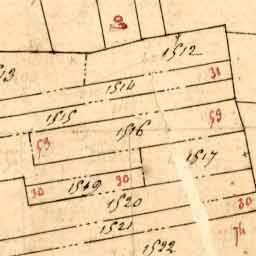 1512
31
1514
1515
1516
59
53
1517
30
1519
30
1520
30
1521
1522